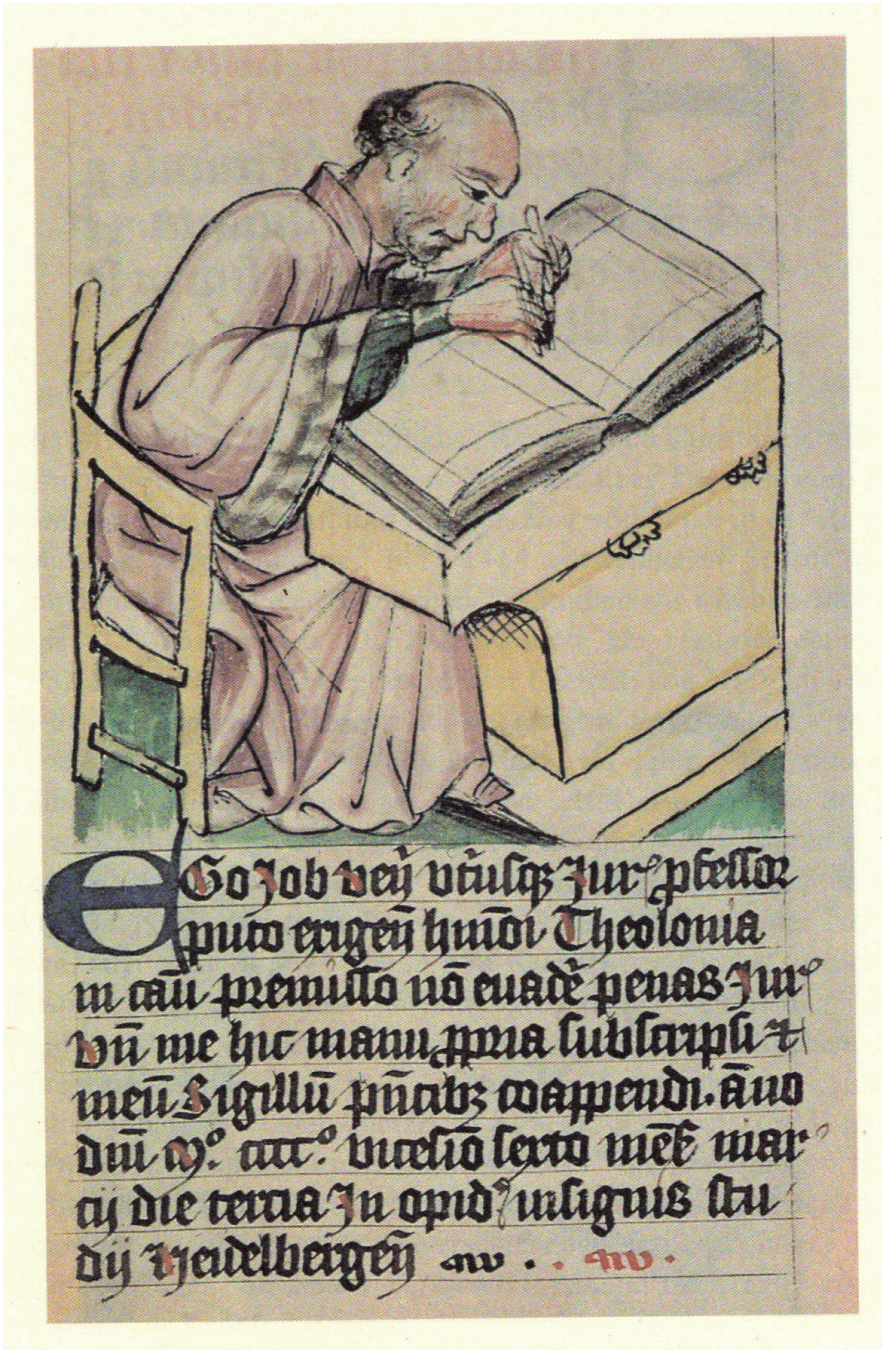 EGo Job veñ vtriusqꝫ Jurꝭ ꝓfessor
puto exigeñ huiōi Theolonia
in cāu premisso nō euadē penas Jurꝭ
Vñ me hic manu ꝓpria subscripsi ⁊
meū Sigillū pñtibꝫ coappendi. āno
dnī Mº. ccccº. vicesīo sexto mēs mar
cij die tercia In opidꝭ insignis stu
dij Heidelbergeñ